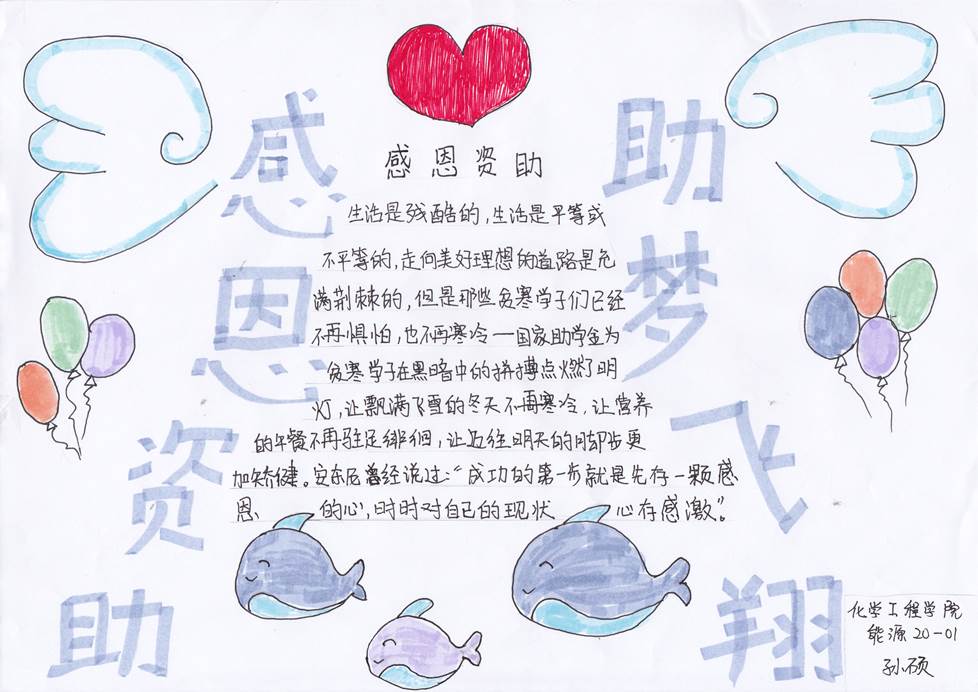 感恩资助
助梦飞翔
感恩资助
生活是残酷的,生活是平等或
不平等的,走向美好理想的道路是危
满荆棘的,但是那些贫寒学子们已经
不再惧怕,也不再寒冷一国家助学金为
贫寒学子在黑暗中的拼搏点燃了明
灯,让飘满飞雪的冬天不再寒冷,让营养
的午餐不再驻足徘徊,让迈往明天的脚步更
加矫健。安东尼曾经说过:“成功的第一步就是先存一颗感
恩 的心,时时对自己的现状 心存感激”。
化学工程学院
能源20-01
孙硕